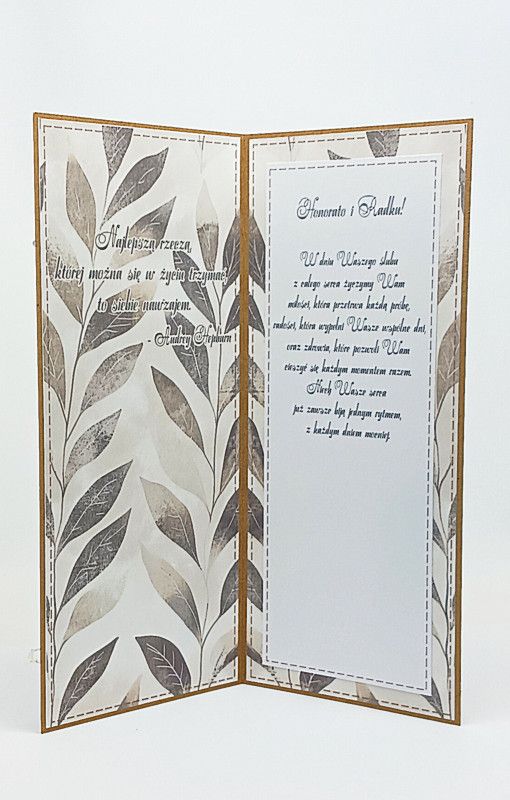 Najlepszą rzeczą,
której można się w życiu trzymać
to siebie nawzajem.
- Audrey Hepburn
Honorato i Radku!
W dniu Waszego ślubu
z całego serca życzymy Wam
miłości, która przetrwa każdą próbę,
radości, która wypełni Wasze wspólne dni,
oraz zdrowia, które pozwoli Wam
cieszyć się każdym momentem razem.
Niech Wasze serca
już zawsze biją jednym rytmem,
z każdym dniem mocniej.